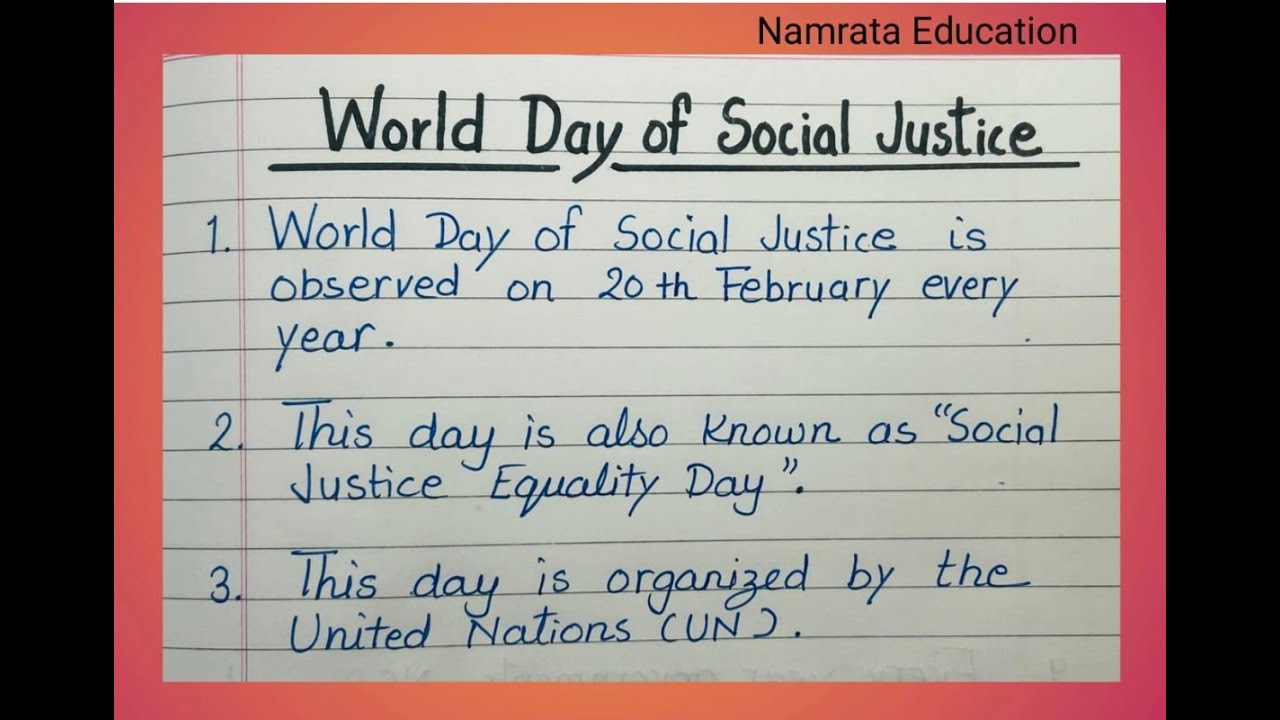 Namrata Education
World Day of Social Justice
1. World Day of Social Justice is
observed on 20th February every
year.
2. This day is also known as "Social
Justice Equality Day".
3. This day is organized by the
United Nations (UN).